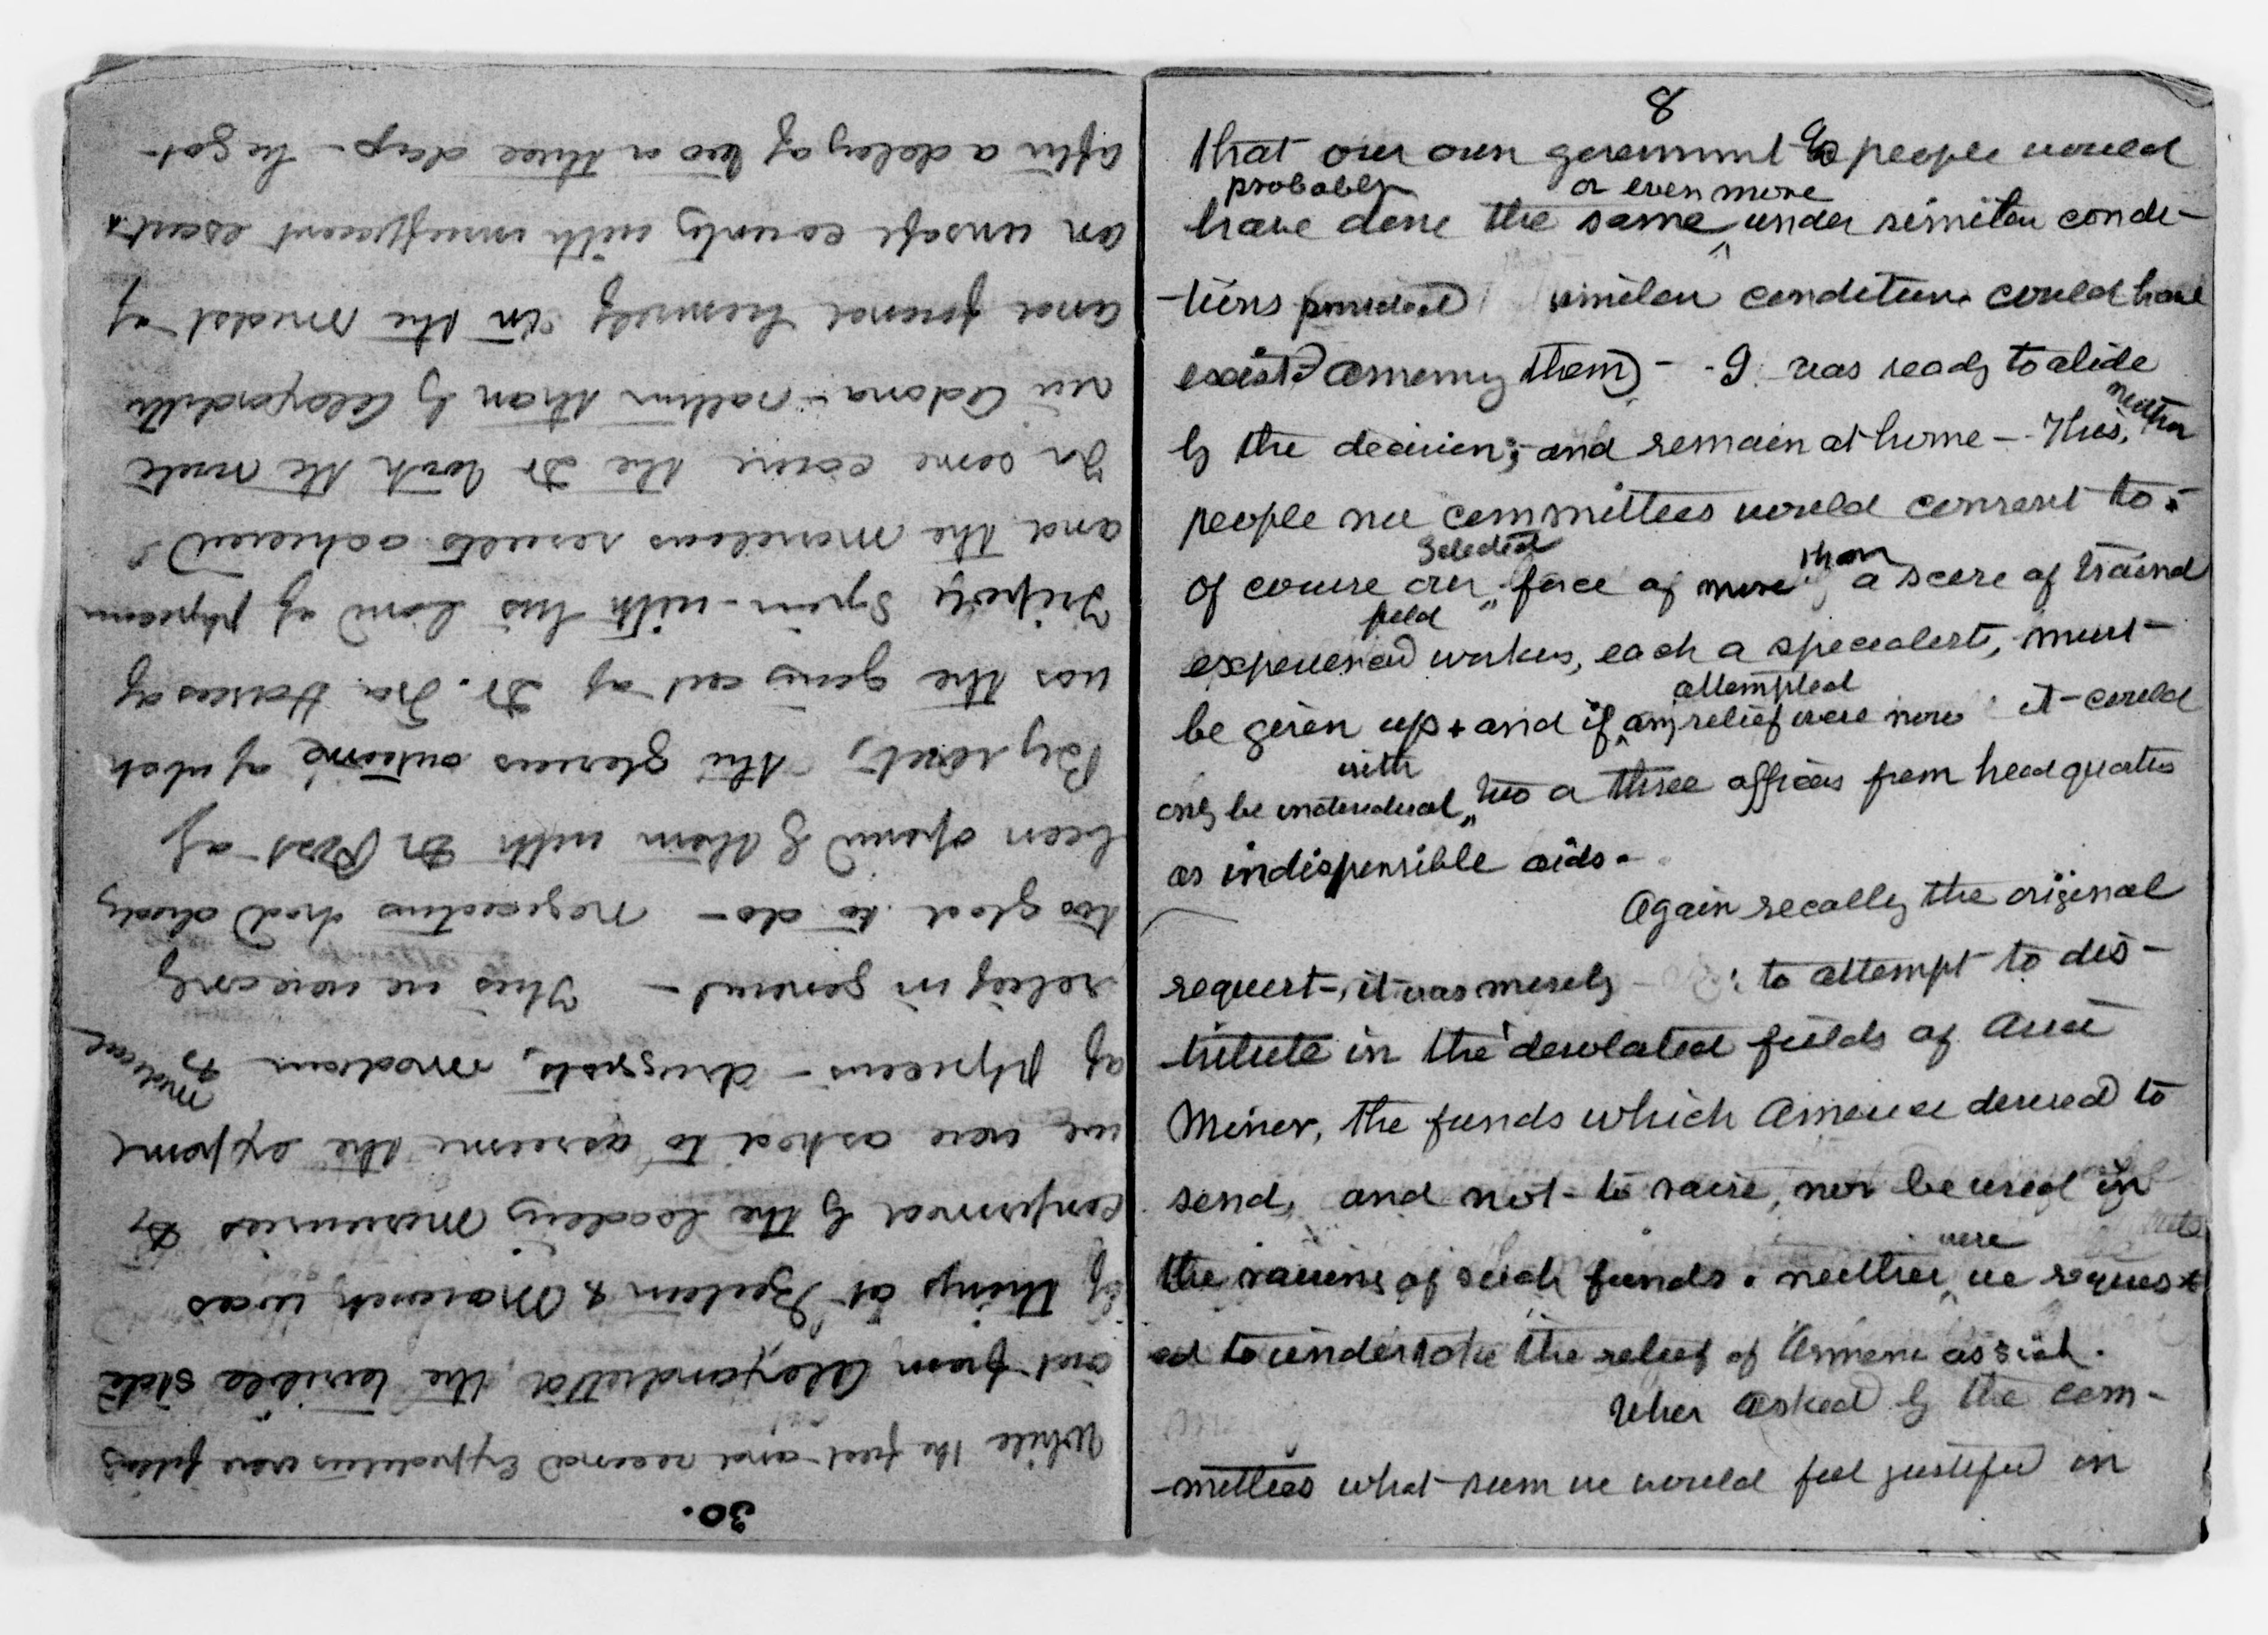 8
that our own government & people would
probably or even more
have done the same under similar condi-
-tions provided similar conditions could have
existed among them) - I was ready to abide
by the decision; and remain at home - This, neither
people nor committees would consent to.
selected than
Of course our force of more a score of trained
field
experienced workers, each a specialist, must
attempted
be given up + and if any relief were now it could
with
only be individual two or three officers from headquarters
as indispensible aids.
Again recalling the original
request, it was merely : to attempt to dis-
tribute in the desolated fields of Asia
Minor, the funds which America desired to
send, and not to raise, nor be used in
were
the raising of such funds. neither we request
ed to undertake the relief of Armenia as such.
When asked by the com-
-mittees what sum we would feel justified in
30.
While the first and second Expeditions were fitting
out from Alexandretta, the terrible state
of things at Zeitoun & Marash was
confirmed by the leading missionaries &
we were asked to assume the expense
of physicians - druggists, medicine & medical
relief in general - This we were only
too glad to do - negociations had already
been opened by them with Dr Post of
Beyrout, the glorious outcome of which
was the going out of Dr. Ira Harris of
Tripoli Syria - with his band of physicians
and the marvelous results achieved.
In some cause the Dr took the route
via Adana - rather than by Alexandretta
and found himself in the midst of
an unsafe country with insufficient escort.
After a delay of two or three days - he got